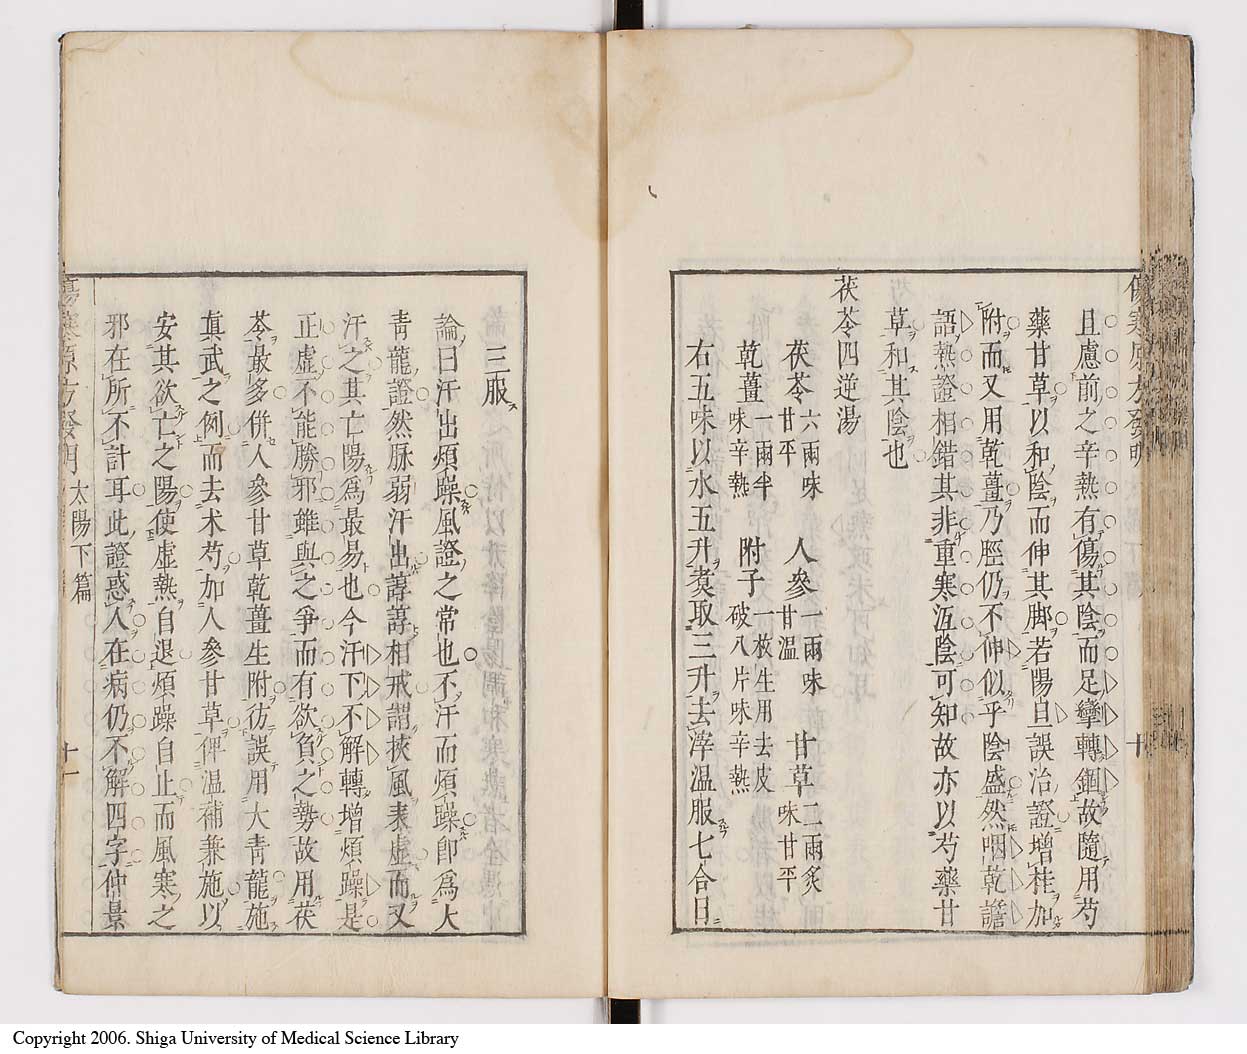 且慮前之辛熱有傷其陰而足攣轉錮故隨用芍
藥甘草以和陰而伸其脚若陽旦誤治證增桂加
附而又用乾薑乃脛仍不伸似乎陰盛然咽乾譫
語熱證相錯其非重寒沍陰可知故亦以芍藥甘
草和其陰也
茯苓四逆湯
茯苓六兩味甘平 人參一兩味甘溫 甘草二兩炙味甘平
乾薑一兩半味辛熱 附子一枚生用去皮破八片味辛熱
右五味以水五升煑取三升去滓溫服七合日
三服
論曰汗出煩躁風證之常也不汗而煩躁卽爲大
靑龍證然脉弱汗出諄諄相戒謂挾風表虛而又
汗之其亡陽爲最易也今汗下不解轉增煩躁是
正虛不能勝邪雖與之爭而有欲負之勢故用茯
苓最多併人參甘草乾薑生附彷誤用大靑龍施
眞武之例而去术芍加人參甘草俾溫補兼施以
安其欲亡之陽使虛熱自退煩躁自止而風寒之
邪在所不計耳此證惑人在病仍不解四字仲景
太陽下篇
十一
Copyright 2006. Shiga University of Medical Science Library